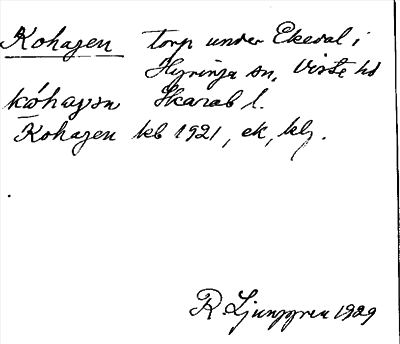 Kohagen torp under Ekedal i
Hyringa sn, Viste hd
kóhagən Skarab l.
Kohagen kb 1921, ek, klj.
R. Ljunggren 1929